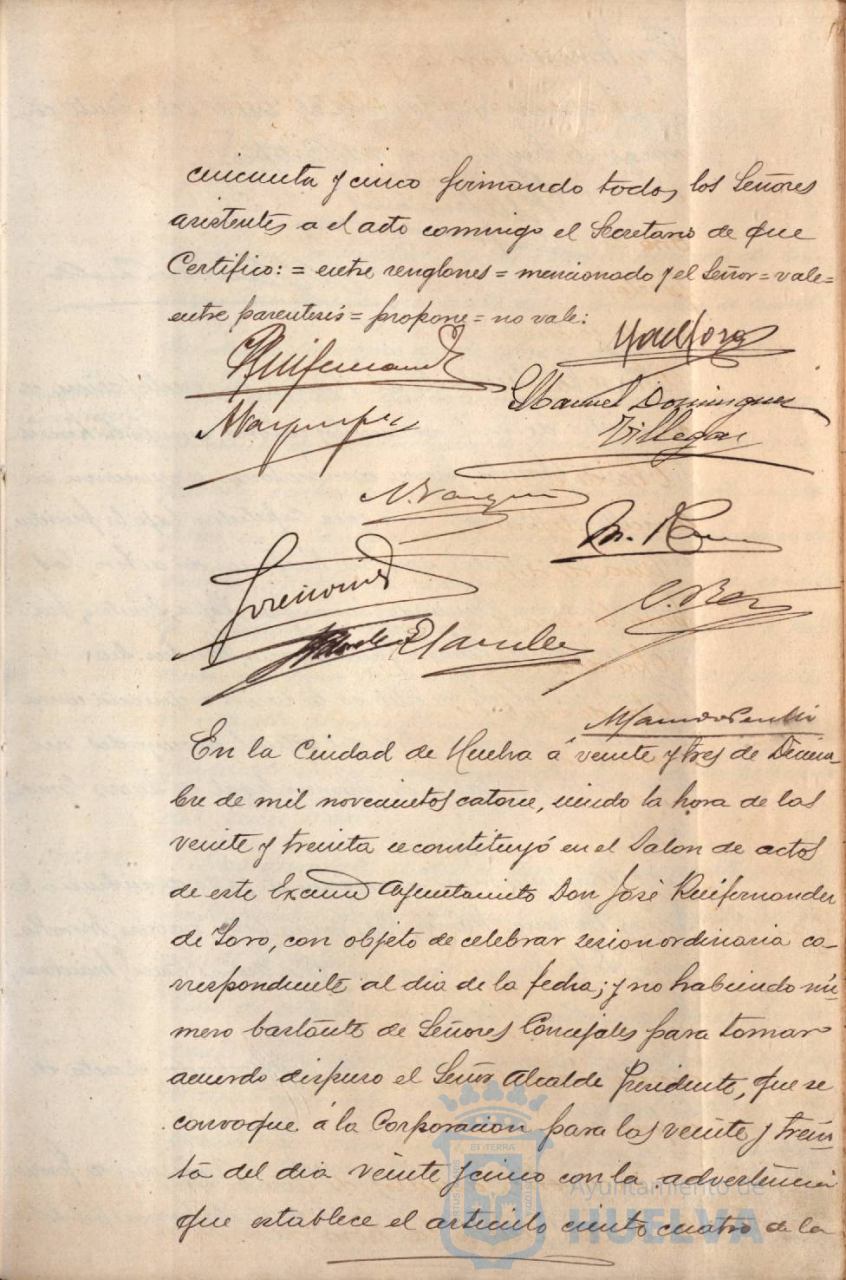 cincuenta y cinco firmando todos los Señores
asistentes a el acto commigo el Secretario de que
Certifico: = entre renglones = mencionado y el Señor = vale =
entre parentesis = propone = no vale:
Manuel Dominguez
Villegas
En la Ciudad de Huelva á veinte y tres de Diciem-
bre de mil novecientos catorce, siendo la hora de las
veinte y treinta se constituyó en el Salon de actos
de este Excmo Ayuntamiento Don José Ruifernandez
de Toro, con objeto de celebrar sesion ordinaria co-
rrespondiente al dia de la fecha; y no habiendo nú-
mero bastante de Señores Concejales para tomar
acuerdo dispuso el Señor Alcalde Presidente, que se
convoque á la Corporacion para las veinte y trein-
ta del dia veinte y cinco con la advertencia
que establece el articulo ciento cuatro de la
Ayuntamiento de
HUELVA